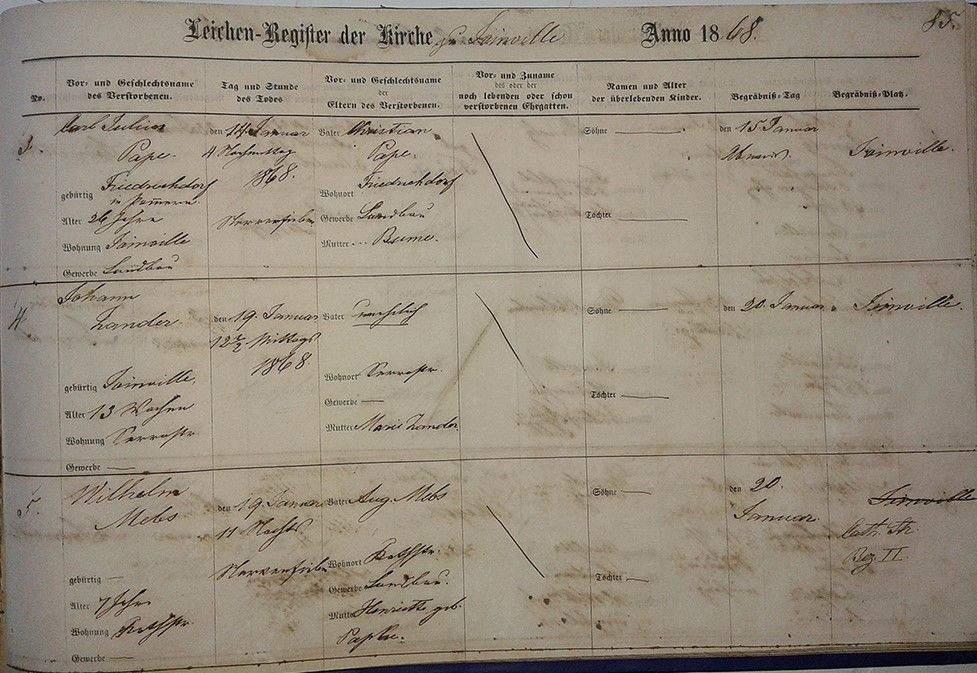 Leichen-Register der Kirche zu Joinville Anno 1868. 85.
No.
Vor- und Geschlechtsname
des Verstorbenen.
Tag und Stunde
des Todes
Vor- und Geschlechtsname
der
Eltern des Verstorbenen.
Vor- und Zuname
des oder der
noch lebenden oder schon
verstorbenen Ehegatten.
Namen und Alter
der überlebenden Kinder.
Begräbniß-Tag
Begräbniß-Platz.
3.
Carl Julius
Pape.
gebürtig Friedrichsdorf
in Pommern.
Alter 26 Jahre
Wohnung Joinville
Gewerbe Landbau
den 14 Januar
4 Nachmittag
1868.
Nervenfieber
Vater Christian
Pape.
Wohnort Friedrichsdorf
Gewerbe Landbau
Mutter
Söhne
Töchter
den 15 Januar
Abends.
Joinville.
4.
Johann
Zander.
gebürtig Joinville.
Alter 13 Wochen
Wohnung Serrastr.
Gewerbe
den 19. Januar
12½ Mittags
1868.
Vater unehelich
Wohnort Serrastr.
Gewerbe
Mutter Marie Zander.
Söhne
Töchter
den 20. Januar
Joinville.
5.
Wilhelm
Mebs
gebürtig
Alter 7 Jahre
Wohnung
Gewerbe
den 19. Januar
11 Nachts
Nervenfieber
Vater Aug. Mebs
Wohnort
Gewerbe Landbau.
Mutter Henriette geb.
Papke.
Söhne
Töchter
den 20.
Januar.
Joinville
Cath. Str.
Bez. II.